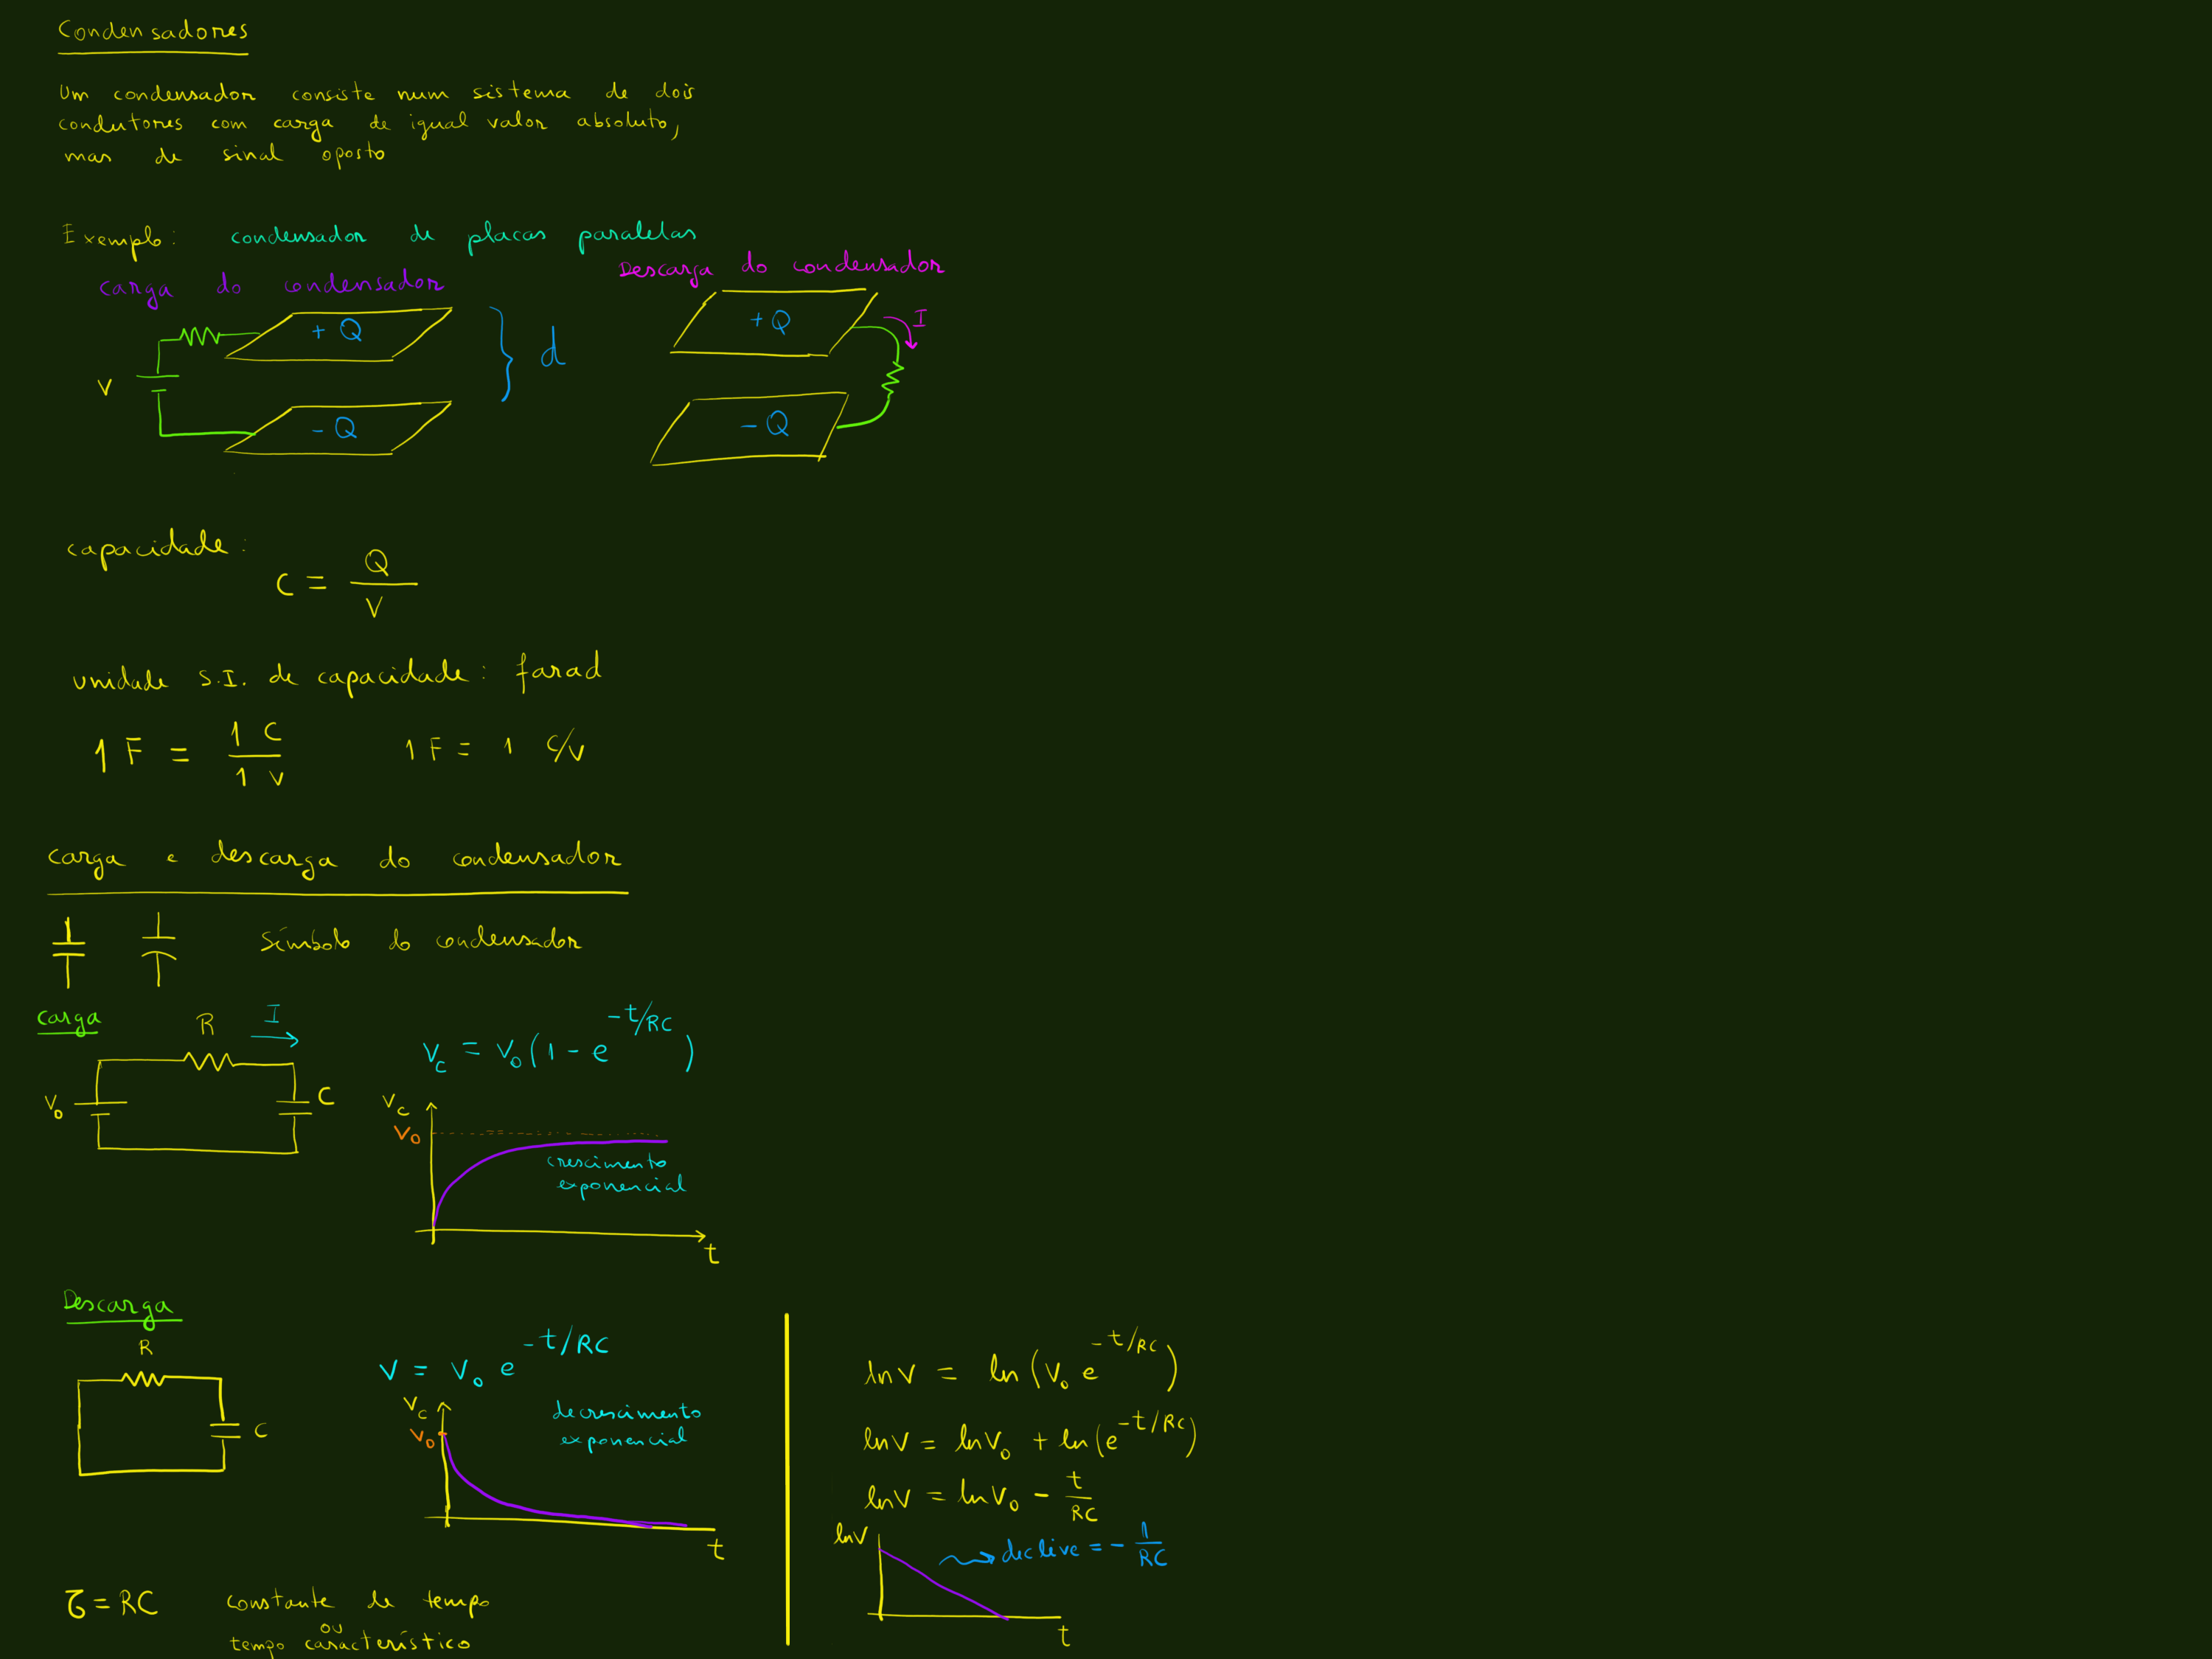 Condensadores
Um condensador consiste num sistema de dois
condutores com carga de igual valor absoluto,
mas de sinal oposto
Exemplo: condensador de placas paralelas
carga do condensador
Descarga do condensador
+ Q
d
V
- Q
+ Q
I
- Q
capacidade:
C = Q/V
unidade S.I. de capacidade: farad
1 F = 1 C / 1 V    1 F = 1 C/V
carga e descarga do condensador
Símbolo do condensador
carga
R
I
V₀
C
V_c = V₀ (1 - e^{-t/RC})
V_c
V₀
crescimento
exponencial
t
Descarga
R
C
V = V₀ e^{-t/RC}
V_c
V₀
decrescimento
exponencial
t
ln V = ln (V₀ e^{-t/RC})
ln V = ln V₀ + ln (e^{-t/RC})
ln V = ln V₀ - t/RC
ln V
declive = - 1/RC
t
τ = RC    constante de tempo
ou
tempo característico